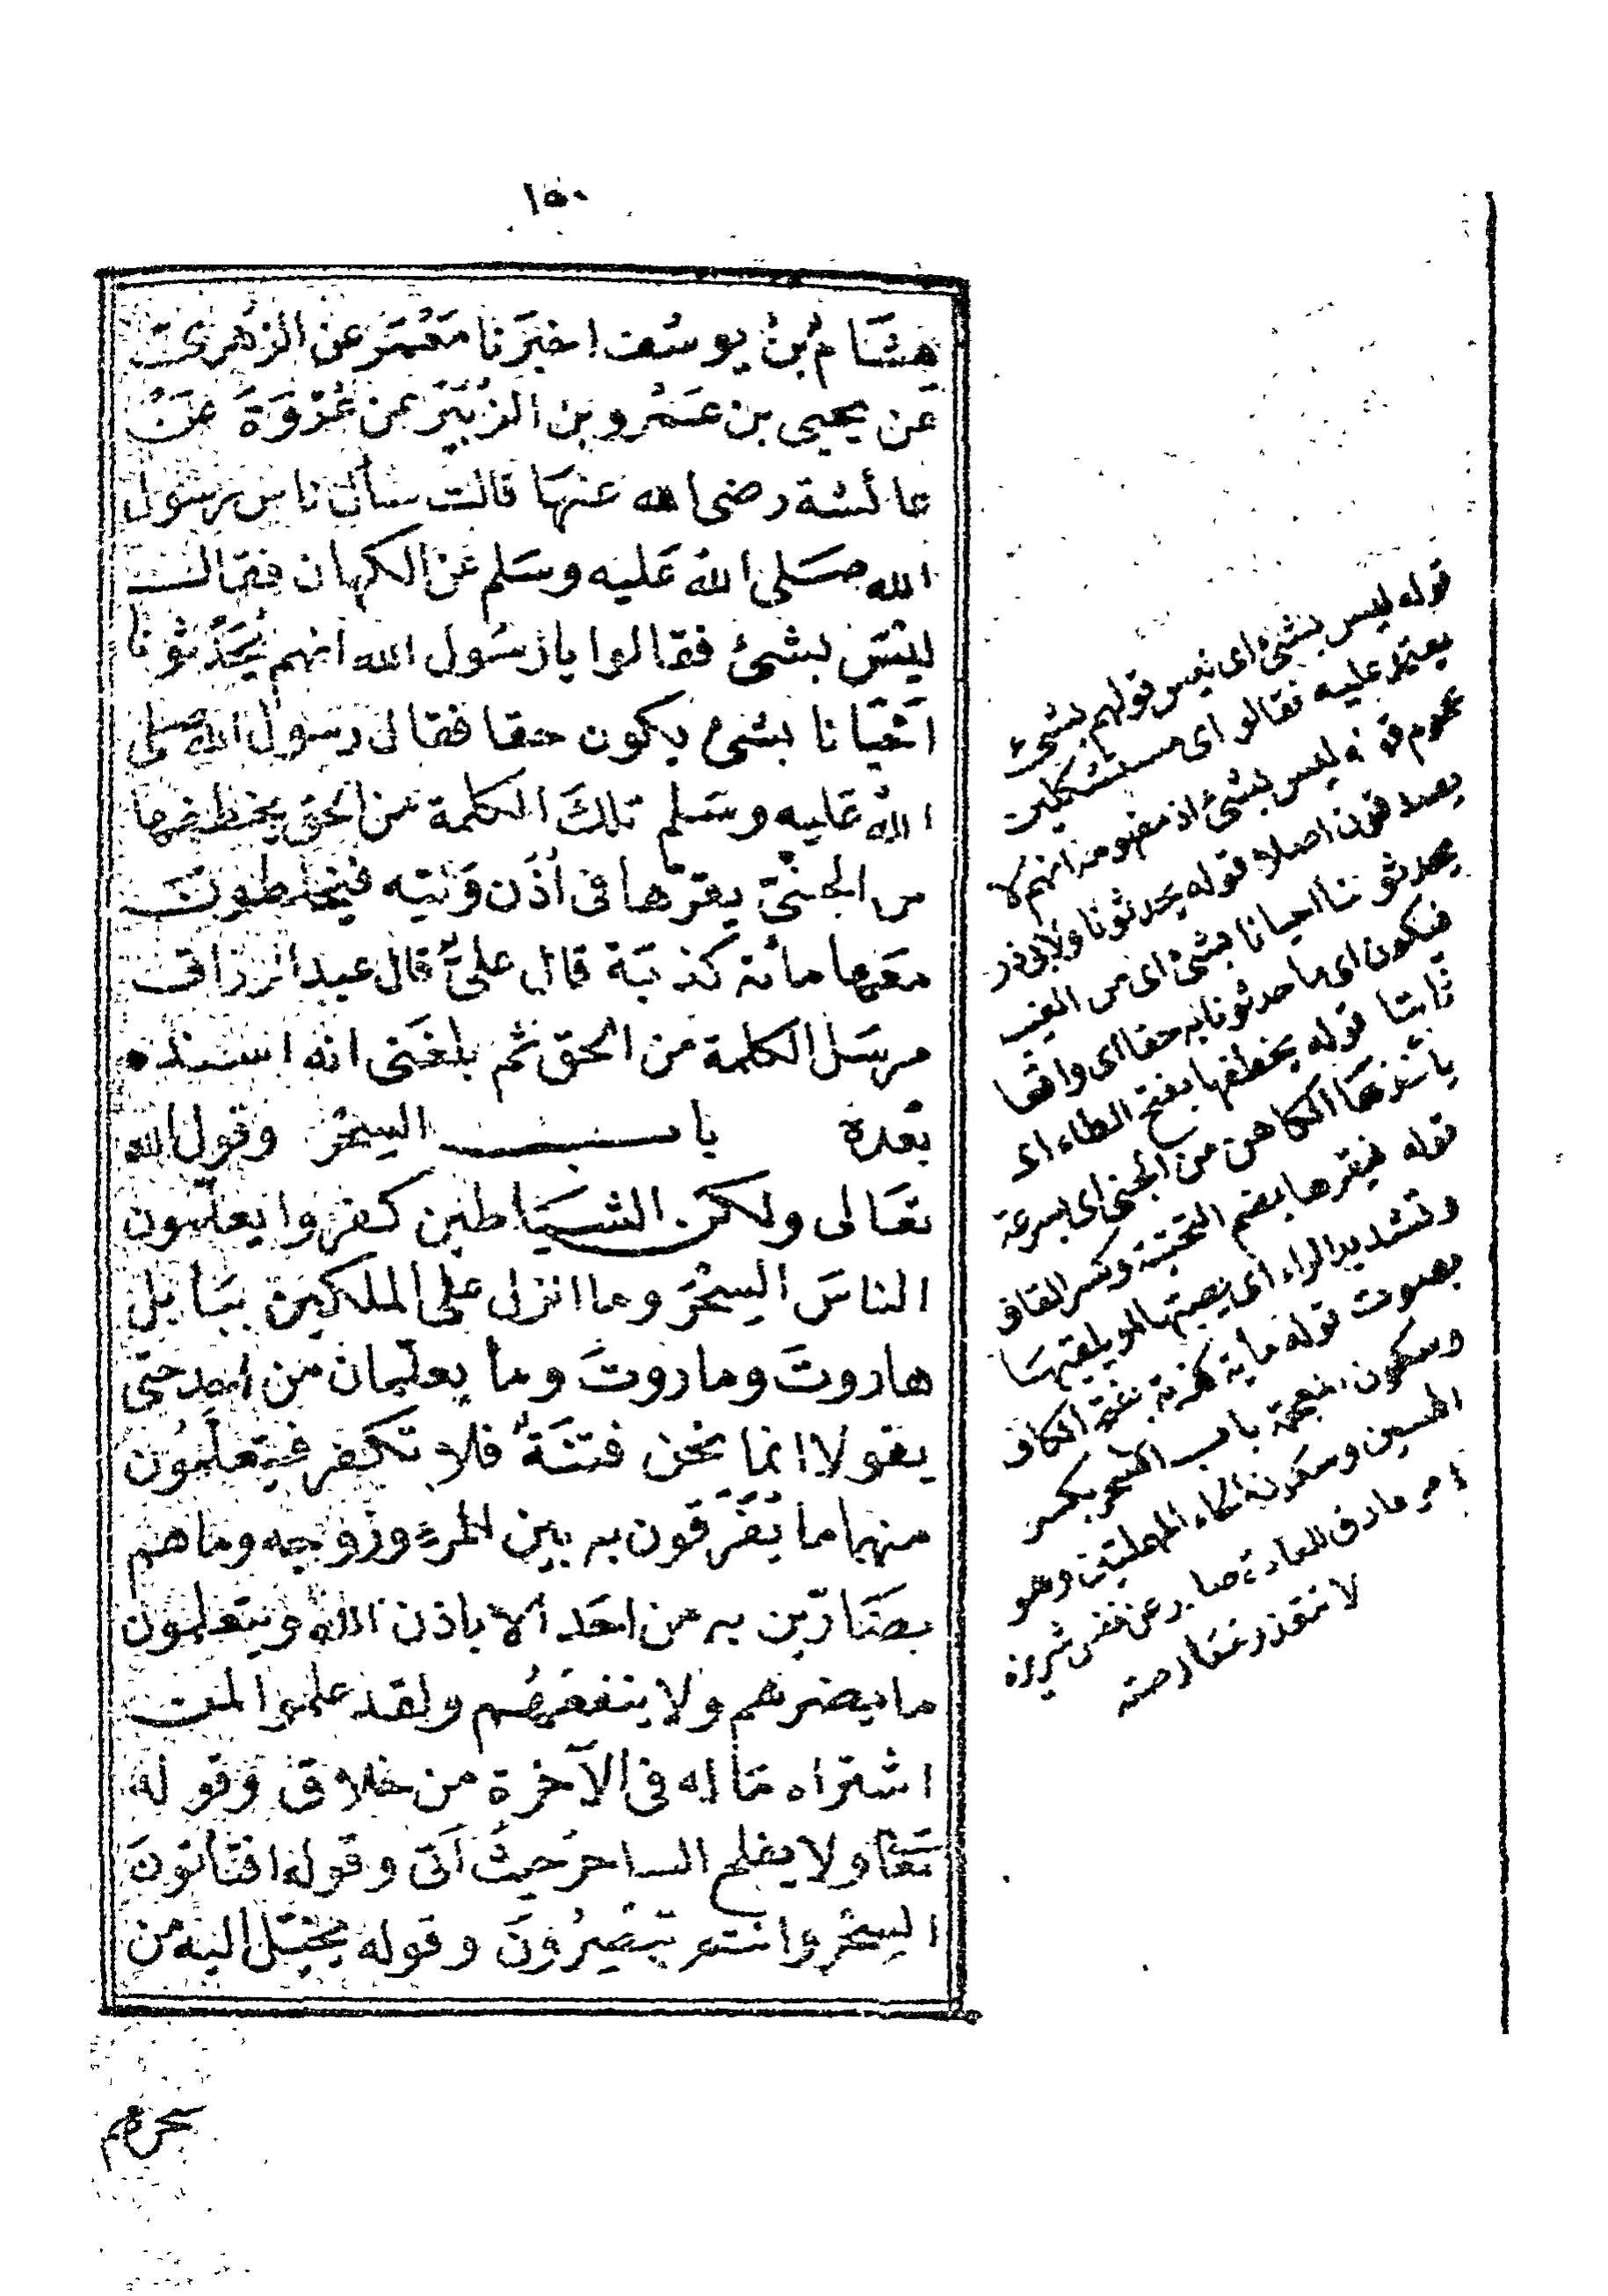 ١٥٠
هِشَامُ بنُ يوسُف اخبَرَنا مَعْمَر عن الزهرىّ
عَن يحيى بن عَمْرو بن الزُبَيْر عن عُرْوَةَ عَنْ
عائشة رضى الله عنهَا قالت سَأل ناس رسُول
الله صَلى اللهُ عَليه وسَلم عَن الكهان فقال
ليْسَ بشئ فقالوا يا رَسُول الله انهم يُحَدِّثُونا
احْيَانا بشئ يكون حقا فقال رسول الله صلى
اللهُ عَليه وسَلم تلكَ الكلمة من الحق يخطفها
من الجنىّ يقرّها فى اُذُن وَليّه فيخلطون
مَعَها مائة كذبَة قال علىٌّ قال عبد الرزاق
مرسَل الكلمة من الحق ثم بلغَنى انه اسنده
بَعْدهُ باب السِحْر وقول الله
تعَالى ولكنّ الشيَاطين كفروا يعلّمون
الناسَ السِحْرَ وما انزل على الملكين ببَابل
هاروتَ وماروتَ وما يعلّمان من احد حتى
يقولا انما نحن فتنَةٌ فلا تكفر فيتعلّمُون
منهما ما يُفَرّقون به بين المرءِ وزوجه وما هم
بضَارّين به من احَد الا باذن الله ويتعلمون
ما يضرهم ولا ينفعُهُم ولقد علموا لمن
اشتراه مَا له فى الآخرة من خلاق وقوله
تعَالى ولا يفلح الساحرُ حيثُ اَتى وقوله افتأتونَ
السِحْر وانتم تبْصِرُونَ وقوله يخيّل اليه من
سحرهم
قوله ليس بشئ اى ليس قولهم بشئ
يعتمد عليه فقالوا اى مستشكلين
عموم قوله ليس بشئ اذ مفهومه انهم لا
يصدقون اصلا قوله يحدثونا ولابى ذر
يحدثوننا احيانا بشئ اى من الغيب
فيكون اى ما حدثونا به حقا اى واقعا
ثابتا قوله يخطفها بفتح الطاء اى
ياخذها الكاهن من الجنى اى بسرعة
قوله فيقرها بضم التحتية وكسر القاف
وتشديد الراء اى يصبها او يلقيهَا
بصوت قوله مائة كذبة بفتح الكاف
وسكون المعجمة باب السحر بكسر
السين وسكون الحاء المهملتين وهو
امر خارق للعادة صادر عن نفس شريرة
لا تتعذر معَارضته